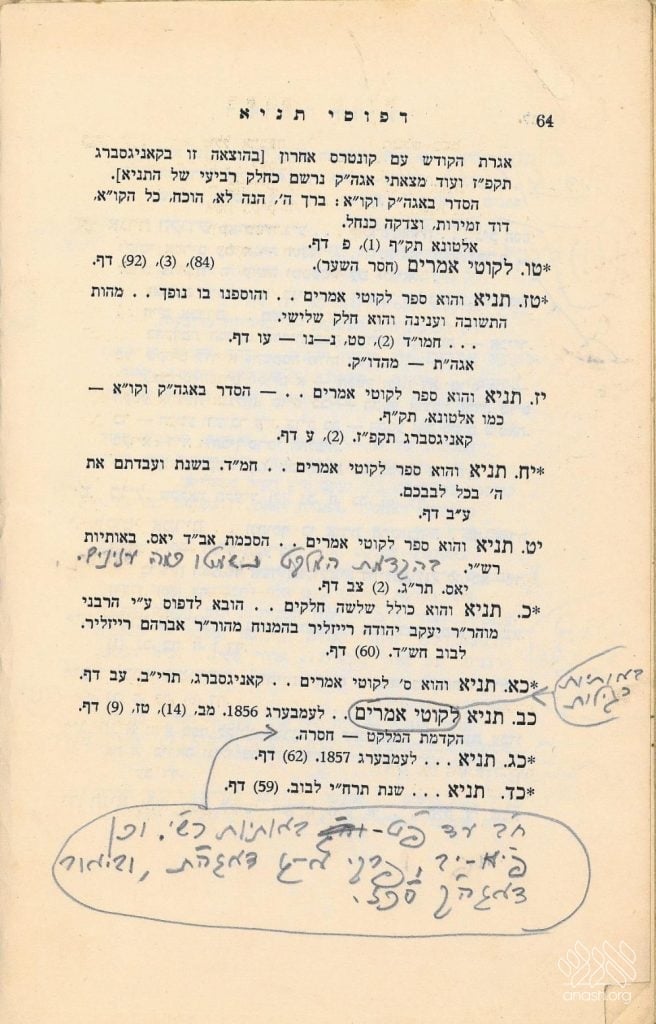 64
דפוסי תניא
אגרת הקודש עם קונטרס אחרון [בהוצאה זו בקאניגסברג
תקפ״ז ועוד מצאתי אגה״ק נרשם כחלק רביעי של התניא].
הסדר באגה״ק וקו״א: ברך ה׳, הנה לא, הוכח, כל הקו״א,
דוד זמירות, וצדקה כנחל.
אלטונא תק״ף (1), פ דף.
*טו. לקוטי אמרים (חסר השער). (84), (3), (92) דף.
*טז. תניא והוא ספר לקוטי אמרים . . והוספנו בו נופך . . מהות
התשובה וענינה והוא חלק שלישי.
. . . חמו״ד (2), סט, נ—נו — עו דף.
אגה״ת — מהדו״ק.
יז. תניא והוא ספר לקוטי אמרים . . — הסדר באגה״ק וקו״א —
כמו אלטונא, תק״ף.
קאניגסברג תקפ״ז. (2), ע דף.
*יח. תניא והוא ספר לקוטי אמרים . . חמ״ד. בשנת ועבדתם את
ה׳ בכל לבבכם.
ע״ב דף.
יט. תניא והוא ספר לקוטי אמרים . . הסכמת אב״ד יאס. באותיות
רש״י. בהקדמת המלקט נשמטו כמה ענינים.
יאס. תר״ג. (2) צב דף.
*כ. תניא והוא כולל שלשה חלקים . . הובא לדפוס ע״י הרבני
מוהר״ר יעקב יהודה רייזליר בהמנוח מהור״ר אברהם רייזליר.
לבוב חש״ד. (60) דף.
*כא. תניא והוא ס׳ לקוטי אמרים . . קאניגסברג, תרי״ב. עב דף.
באותיות
רגילות
כב. תניא לקוטי אמרים . . לעמבערג 1856. מב, (14), טז, (9) דף.
הקדמת המלקט — חסרה.
*כג. תניא . . . לעמבערג 1857. (62) דף.
*כד. תניא . . . שנת תרח״י לבוב. (59) דף.
ח״ב עד פ״ט באותיות רש״י. וכן
פי״א-יב, פרקי
anash.org